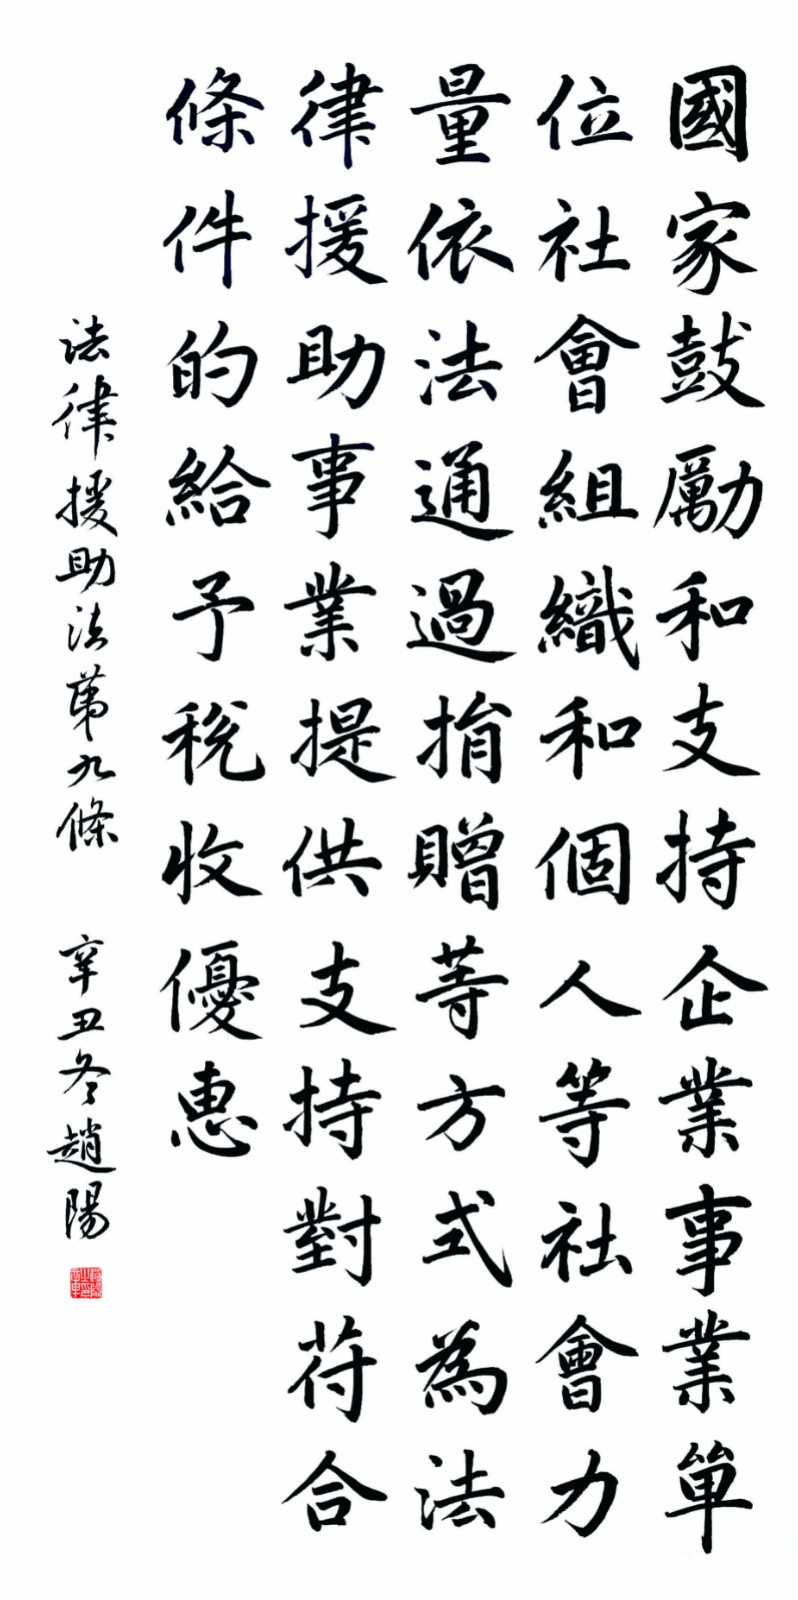 國家鼓勵和支持企業事業單
位社會組織和個人等社會力
量依法通過捐贈等方式為法
律援助事業提供支持對符合
條件的給予稅收優惠
法律援助法第九條 辛丑冬趙陽